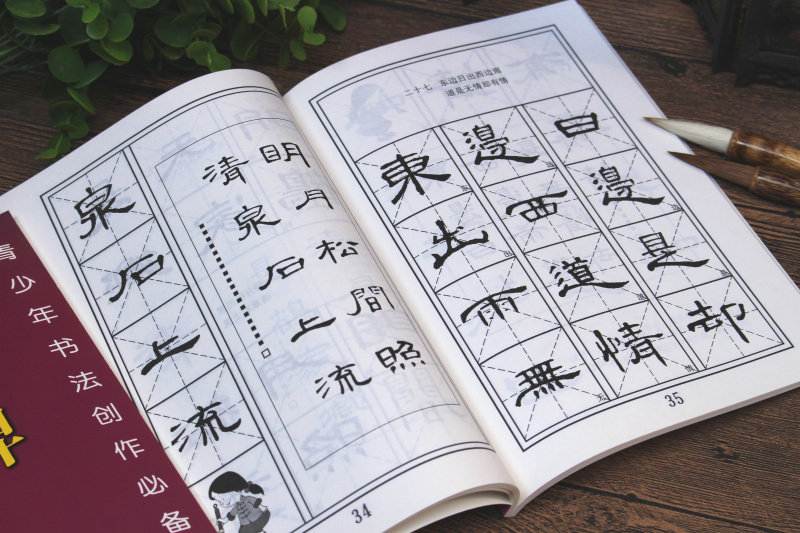 泉石上流
明月松間照
清泉石上流
34
二十七 东边日出西边雨
道是无情却有情
東邊日
出西邊
雨道是
無情却
35
青少年书法创作必备